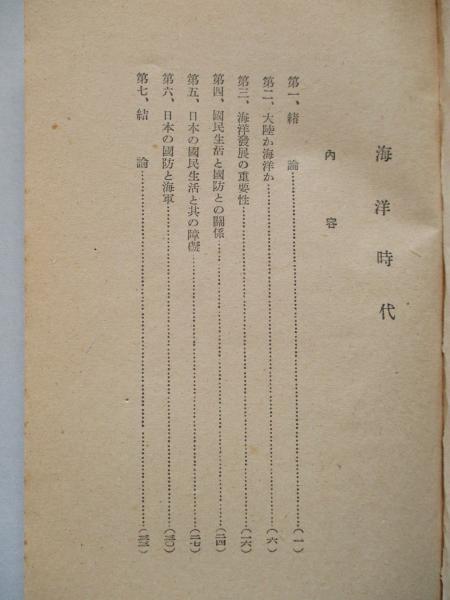 海洋時代
內容
第一、緒論……(一)
第二、大陸か海洋か……(六)
第三、海洋發展の重要性……(一六)
第四、國民生活と國防との關係……(二四)
第五、日本の國民生活と其の障礙……(二七)
第六、日本の國防と海軍……(三〇)
第七、結論……